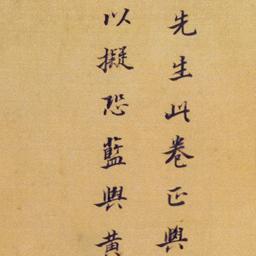 先生此卷正與
以擬恐藍與黃